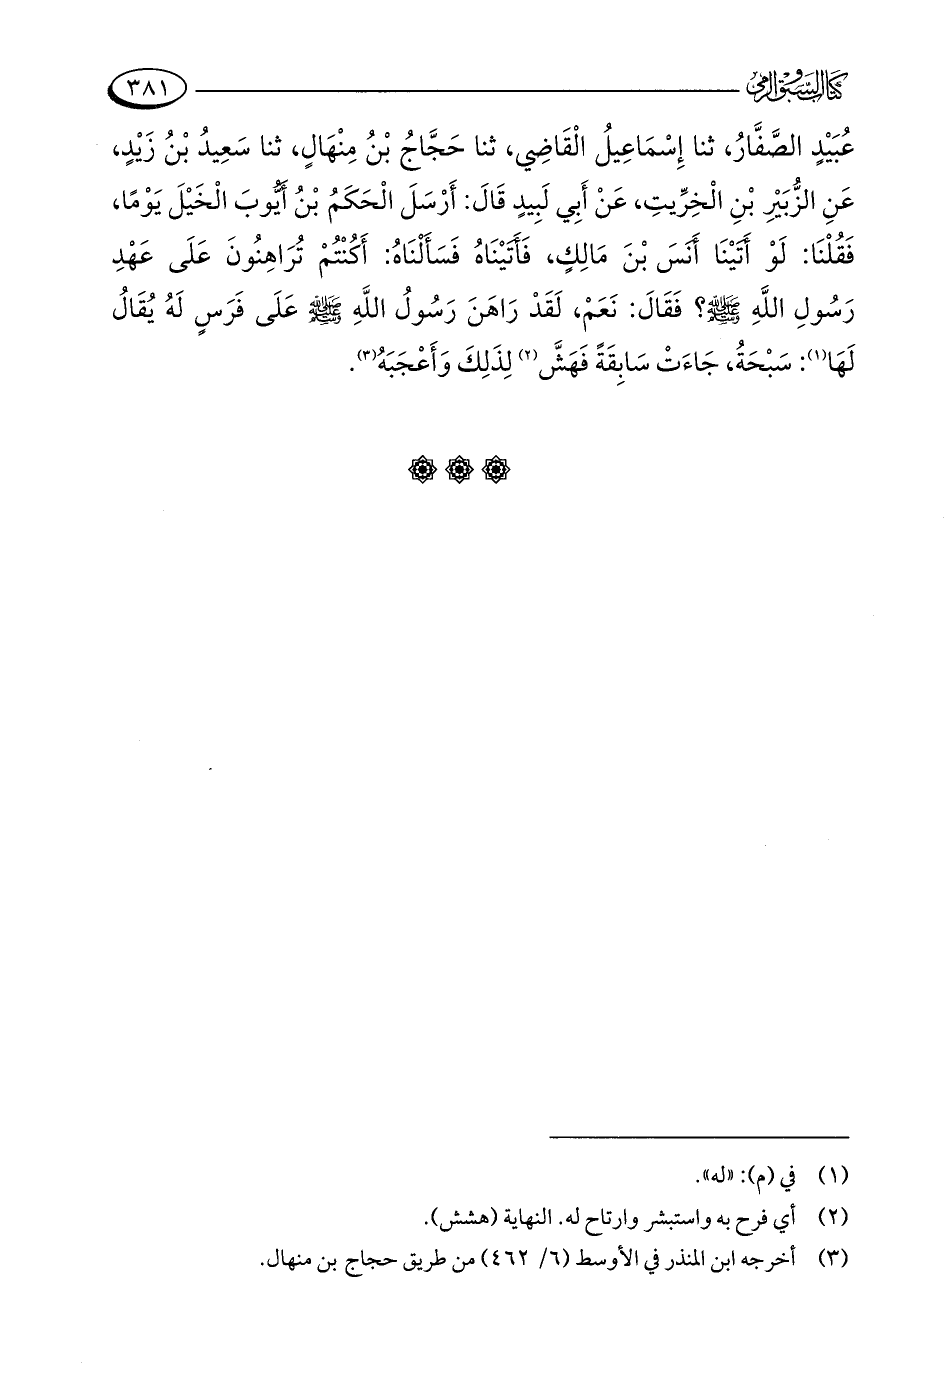 كتاب السبق والرمي ٣٨١
عُبَيْدٍ الصَّفَّارُ، ثنا إِسْمَاعِيلُ الْقَاضِي، ثنا حَجَّاجُ بْنُ مِنْهَالٍ، ثنا سَعِيدُ بْنُ زَيْدٍ،
عَنِ الزُّبَيْرِ بْنِ الْخِرِّيتِ، عَنْ أَبِي لَبِيدٍ قَالَ: أَرْسَلَ الْحَكَمُ بْنُ أَيُّوبَ الْخَيْلَ يَوْمًا،
فَقُلْنَا: لَوْ أَتَيْنَا أَنَسَ بْنَ مَالِكٍ، فَأَتَيْنَاهُ فَسَأَلْنَاهُ: أَكُنْتُمْ تُرَاهِنُونَ عَلَى عَهْدِ
رَسُولِ اللَّهِ ﷺ؟ فَقَالَ: نَعَمْ، لَقَدْ رَاهَنَ رَسُولُ اللَّهِ ﷺ عَلَى فَرَسٍ لَهُ يُقَالُ
لَهَا(١): سَبْحَةُ، جَاءَتْ سَابِقَةً فَهَشَّ(٢) لِذَلِكَ وَأَعْجَبَهُ(٣).
(١) في (م): «له».
(٢) أي فرح به واستبشر وارتاح له. النهاية (هشش).
(٣) أخرجه ابن المنذر في الأوسط (٦/ ٤٦٢) من طريق حجاج بن منهال.